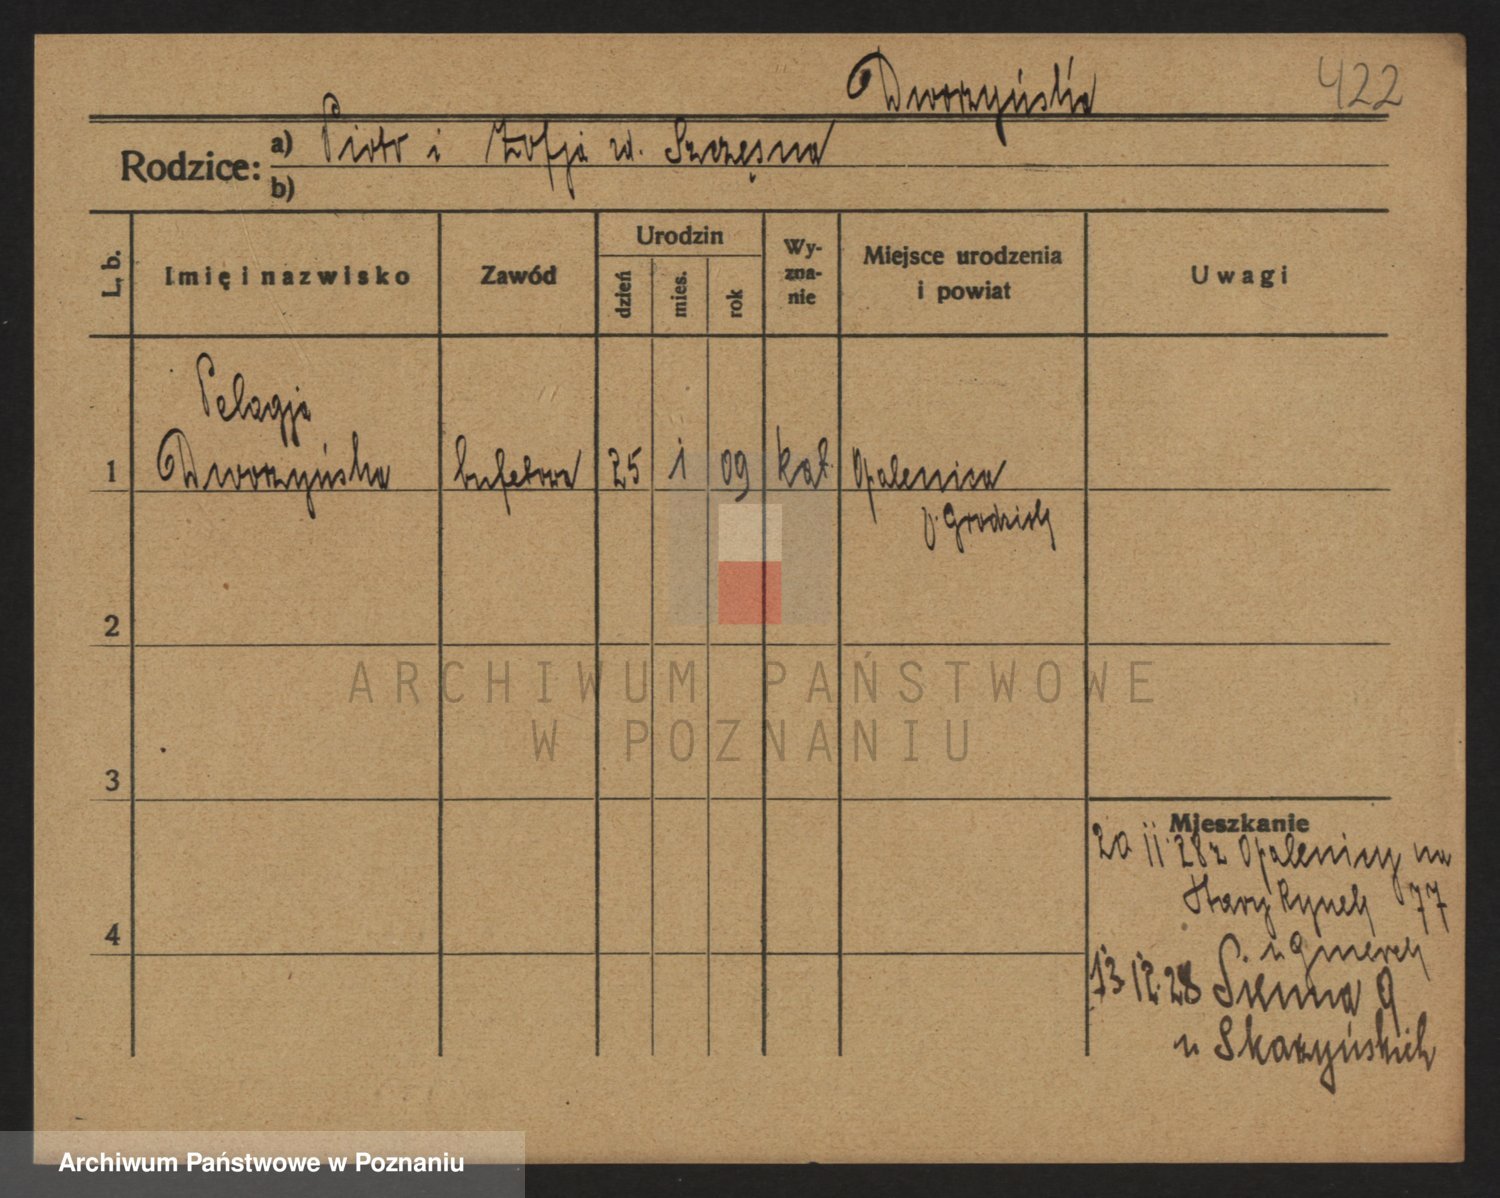 Dworzyńska
422
Rodzice: a) Piotr i Zofja ur. Szczęsna
b)
L. b.
Imię i nazwisko
Zawód
Urodzin
dzień
mies.
rok
Wy-
zna-
nie
Miejsce urodzenia
i powiat
Uwagi
Pelagja
1 Dworzyńska bufetowa 25 1 09 kat. Opalenica
p. Grodzisk
2
3
4
Mieszkanie
20 11 28 z Opalenicy na
Stary Rynek 77
u
13 12 28 Sienna 9
u Skarzyńskich
ARCHIWUM PAŃSTWOWE
W POZNANIU
Archiwum Państwowe w Poznaniu